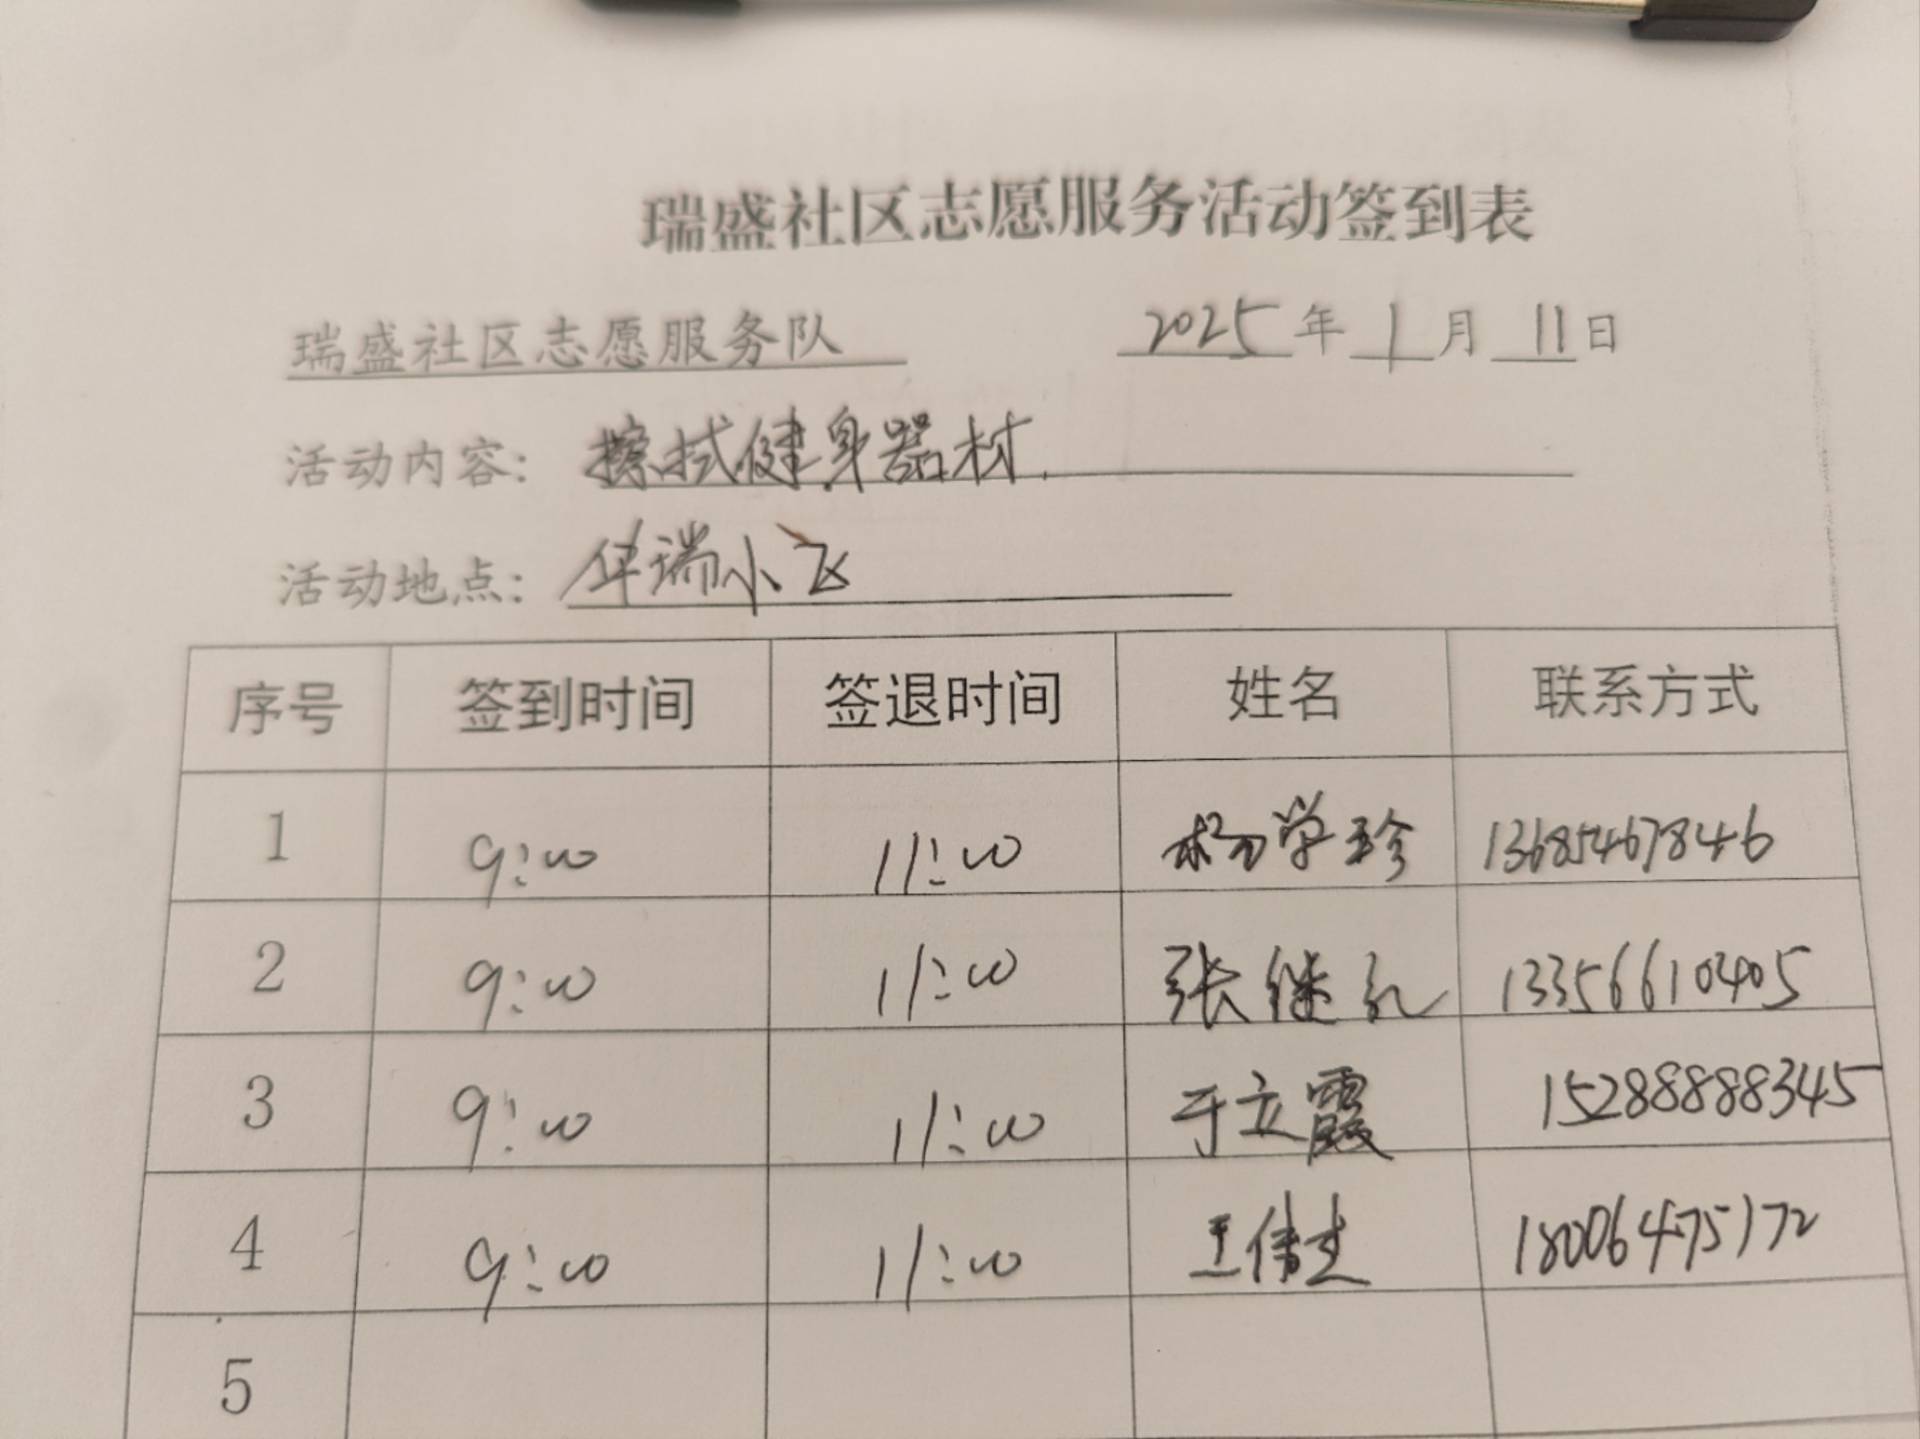 瑞盛社区志愿服务活动签到表
瑞盛社区志愿服务队 2025年1月11日
活动内容：擦拭健身器材.
活动地点：华瑞小区
序号 签到时间 签退时间 姓名 联系方式
1 9:00 11:00 杨学珍 13685467846
2 9:00 11:00 张继礼 13356610405
3 9:00 11:00 于立霞 15288888345
4 9:00 11:00 王伟 18006475172
5